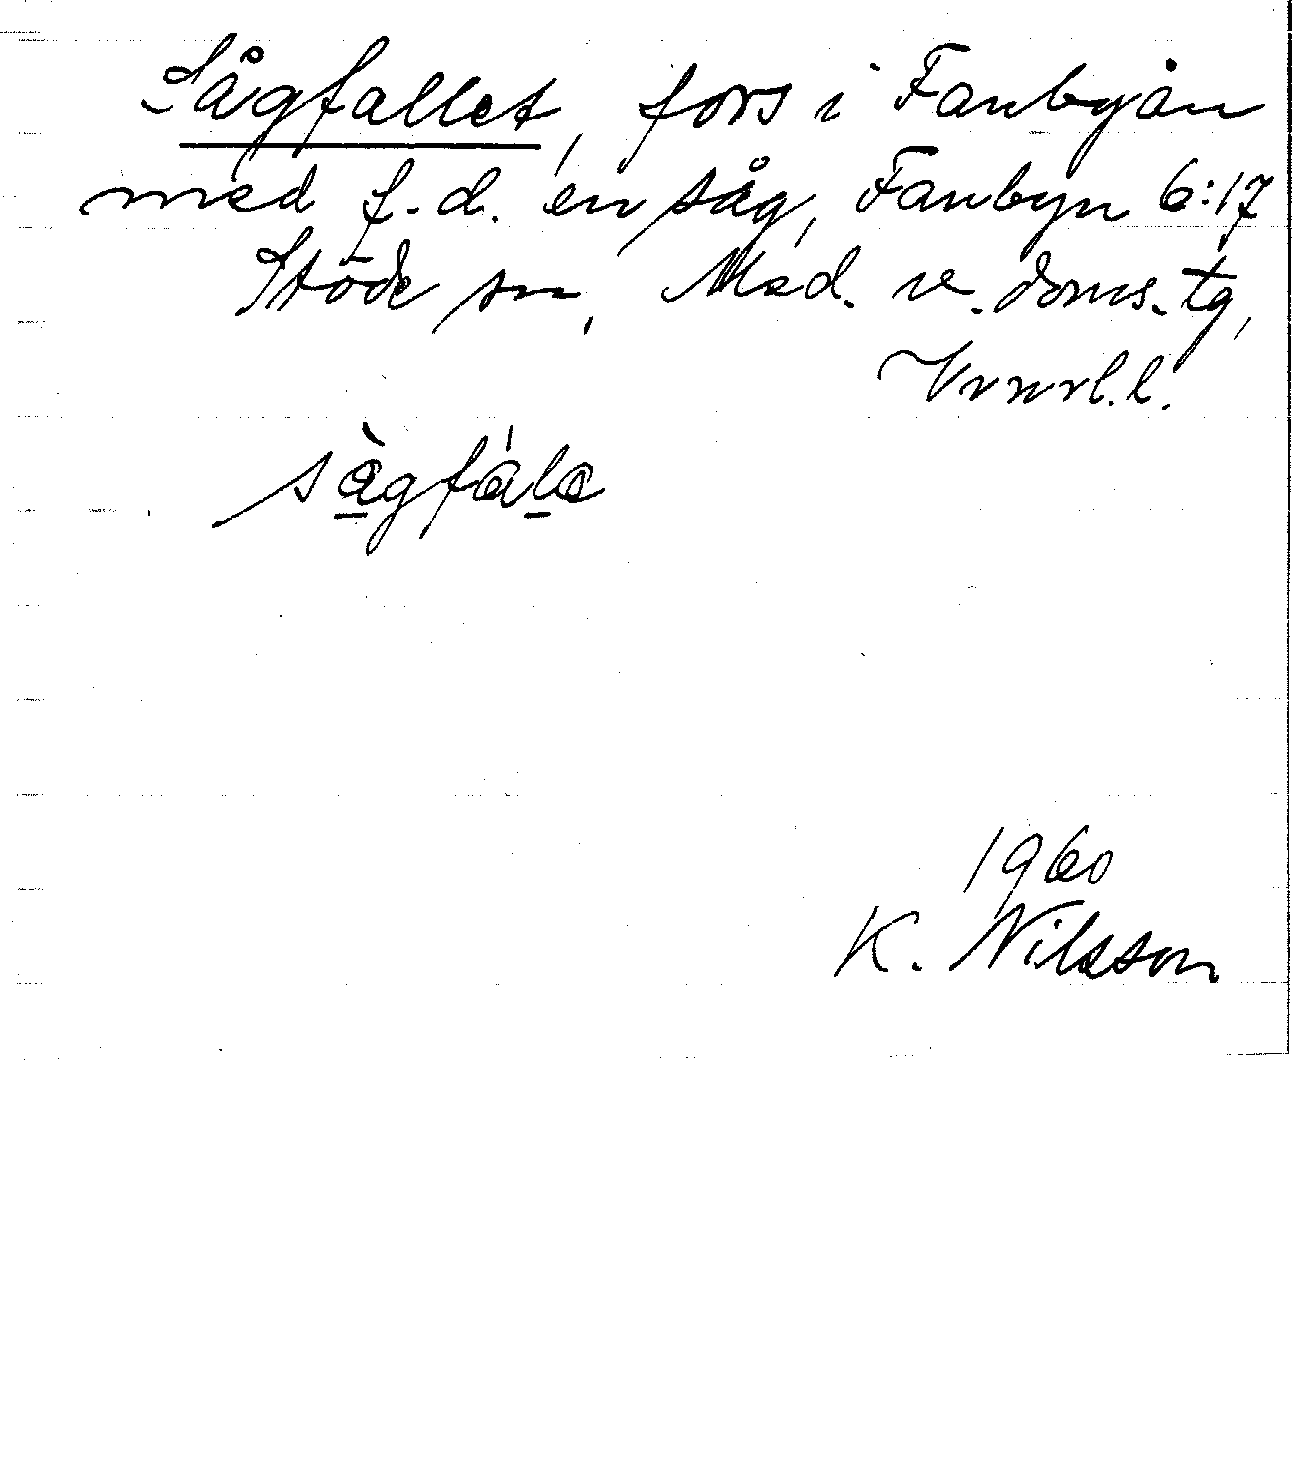 Sågfallet, fors i Fanbyån
med f.d. en såg, Fanbyn 6:17
Stöde sn, Med. v. doms. tg,
Vrnrl. l.
sàgfála
1960
K. Nilsson